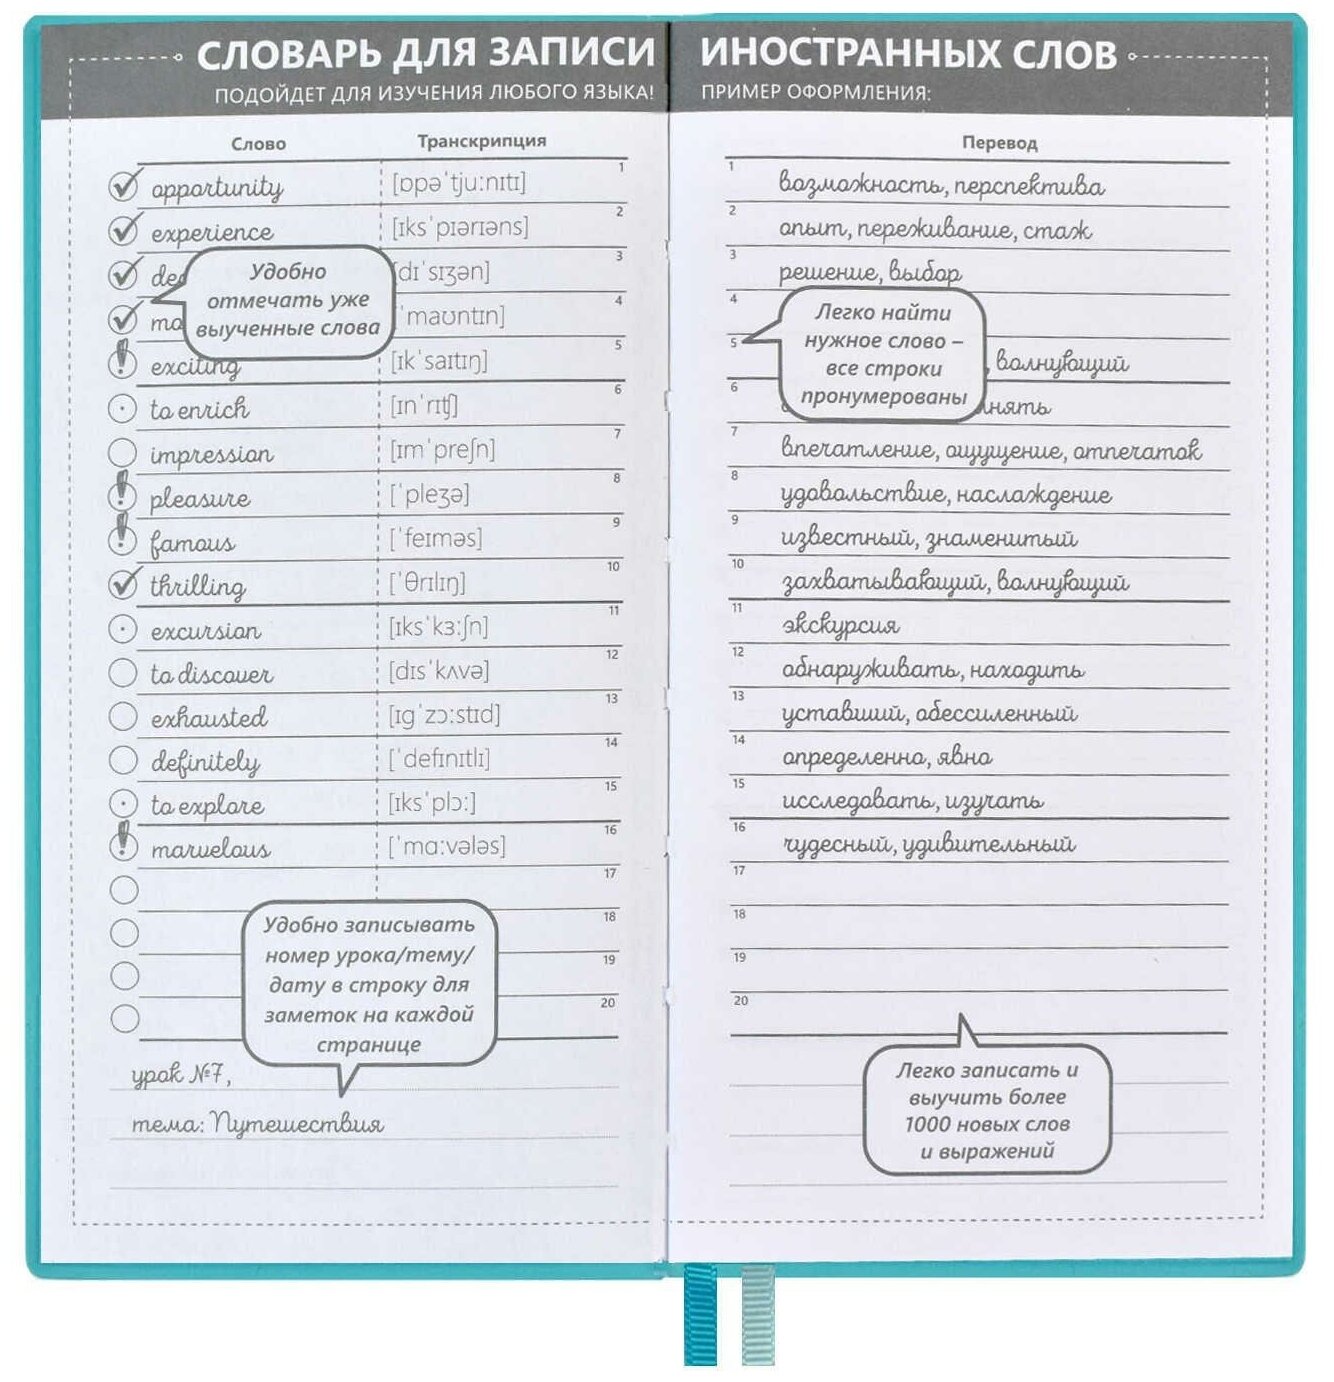 СЛОВАРЬ ДЛЯ ЗАПИСИ ИНОСТРАННЫХ СЛОВ
ПОДОЙДЕТ ДЛЯ ИЗУЧЕНИЯ ЛЮБОГО ЯЗЫКА! ПРИМЕР ОФОРМЛЕНИЯ:
Слово Транскрипция
opportunity [ɒpəˈtjuːnɪtɪ] 1
experience [ɪksˈpɪərɪəns] 2
[dɪˈsɪʒən] 3
[ˈmaʊntɪn] 4
exciting [ɪkˈsaɪtɪŋ] 5
to enrich [ɪnˈrɪʧ] 6
impression [ɪmˈpreʃn] 7
pleasure [ˈpleʒə] 8
famous [ˈfeɪməs] 9
thrilling [ˈθrɪlɪŋ] 10
excursion [ɪksˈkɜːʃn] 11
to discover [dɪsˈkʌvə] 12
exhausted [ɪgˈzɔːstɪd] 13
definitely [ˈdefɪnɪtlɪ] 14
to explore [ɪksˈplɔː] 15
marvelous [ˈmɑːvələs] 16
17
18
19
20
Удобно
отмечать уже
выученные слова
Удобно записывать
номер урока/тему/
дату в строку для
заметок на каждой
странице
урок №7,
тема: Путешествия
Перевод
1 возможность, перспектива
2 опыт, переживание, стаж
3 решение, выбор
4
5 волнующий
6
7 впечатление, ощущение, отпечаток
8 удовольствие, наслаждение
9 известный, знаменитый
10 захватывающий, волнующий
11 экскурсия
12 обнаруживать, находить
13 уставший, обессиленный
14 определенно, явно
15 исследовать, изучать
16 чудесный, удивительный
17
18
19
20
Легко найти
нужное слово –
все строки
пронумерованы
Легко записать и
выучить более
1000 новых слов
и выражений